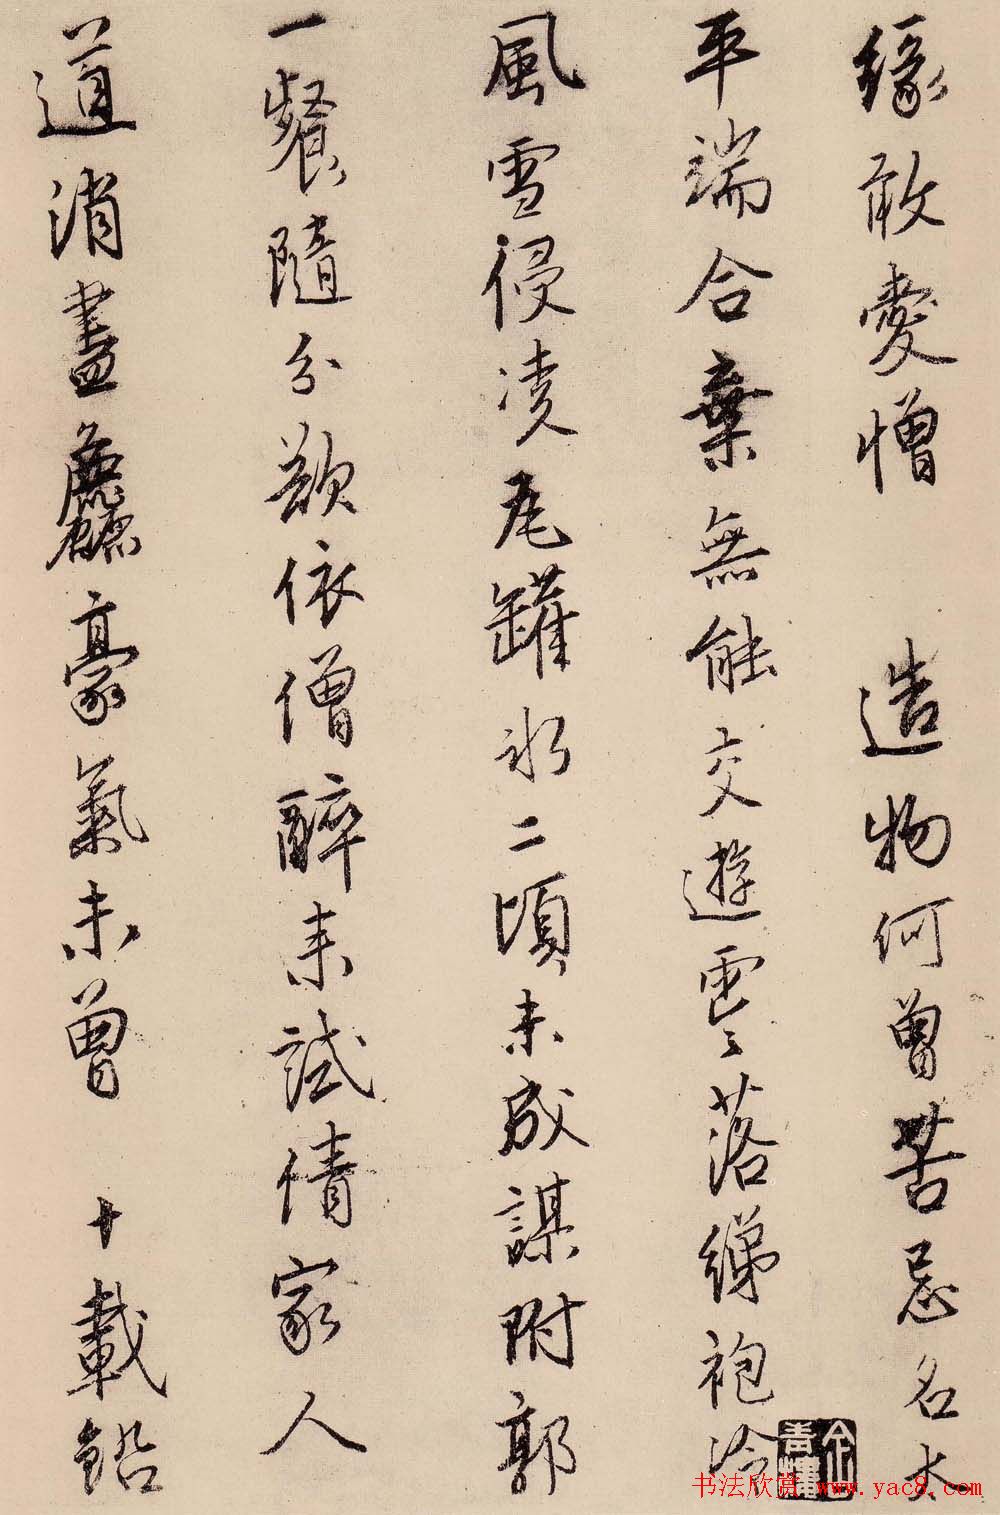 緣敢愛憎 造物何曾苦忌名太
平端合棄無能交遊雲落綈袍冷
風雪侵凌瓦罐冰二頃未成謀附郭
一餐隨分欲依僧醉來試倩家人
道消盡麤豪氣未曾 十載鉛
书法欣赏 www.yac8.com